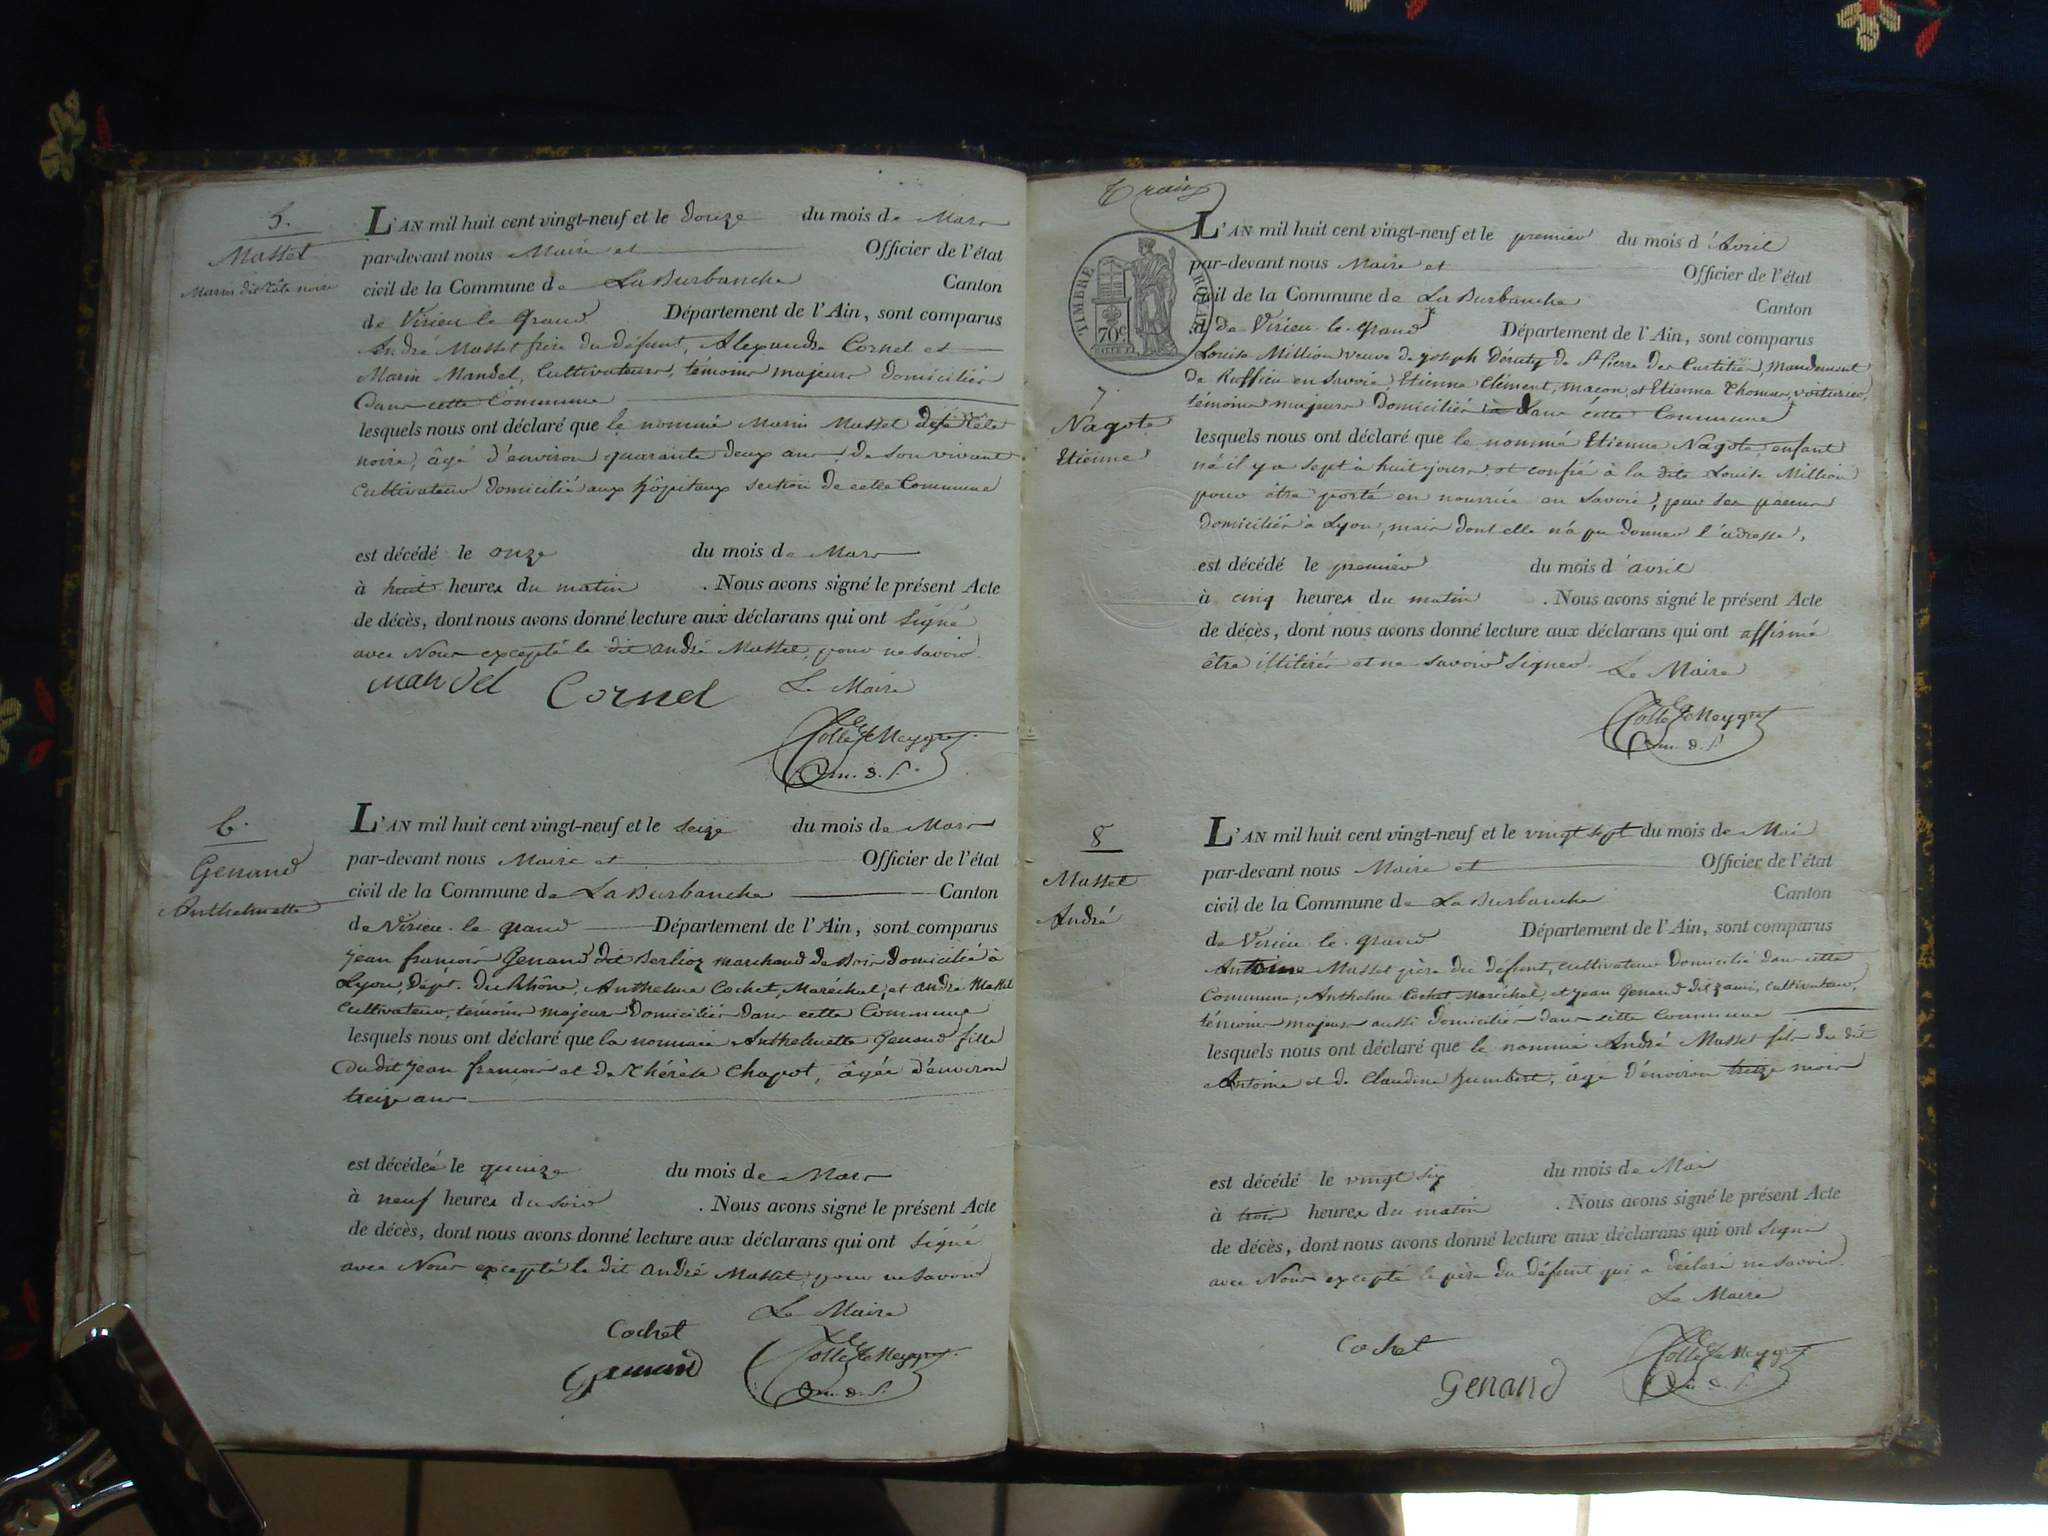 5.
Masset
Marin dit tête noire
L'AN mil huit cent vingt-neuf et le douze du mois de Mars
par-devant nous Maire et Officier de l'état
civil de la Commune de La Burbanche Canton
de Virieu le grand Département de l'Ain, sont comparus
André Masset frère du défunt, Alexandre Cornel et
Marin Mandel, Cultivateurs, témoins majeurs domiciliés
dans cette Commune
lesquels nous ont déclaré que le nommé Marin Masset dit tête
noire, âgé d'environ quarante deux ans, de son vivant
cultivateur domicilié aux hôpitaux section de cette Commune
est décédé le onze du mois de Mars
à huit heures du matin . Nous avons signé le présent Acte
de décès, dont nous avons donné lecture aux déclarans qui ont signé
avec Nous excepté le dit andré Masset, pour ne savoir.
Mandel Cornel Le Maire
m. d. f.
6.
Genand
Anthelmette
L'AN mil huit cent vingt-neuf et le seize du mois de Mars
par-devant nous Maire et Officier de l'état
civil de la Commune de La Burbanche Canton
de Virieu le grand Département de l'Ain, sont comparus
jean françois Genand dit Berlioz marchand de Bois domicilié à
Lyon, Dépt. du Rhône, Anthelme Cochet, Maréchal, et andré Masset
cultivateur, témoins majeurs Domiciliés dans cette Commune
lesquels nous ont déclaré que la nommée Anthelmette Genand fille
du dit jean françois et de Thérèse Chapot, âgée d'environ
treize ans
est décédée le quinze du mois de Mars
à neuf heures du soir . Nous avons signé le présent Acte
de décès, dont nous avons donné lecture aux déclarans qui ont signé
avec Nous excepté le dit andré Masset, pour ne savoir
Le Maire
Cochet
Genand
m. d. f.
Trois
TIMBRE ROYAL
70 c.
7
Nagote
Etienne
L'AN mil huit cent vingt-neuf et le premier du mois d'Avril
par-devant nous Maire et Officier de l'état
civil de la Commune de La Burbanche Canton
de Virieu le grand Département de l'Ain, sont comparus
Louise Million veuve de joseph Déruty de St Pierre de Curtille, mandement
de Ruffieu en Savoie, Etienne Clément, maçon, et Etienne Thomas, voiturier,
témoins majeurs domiciliés dans cette Commune
lesquels nous ont déclaré que le nommé Etienne Nagote, enfant
né il y a sept à huit jours et confié à la dite Louise Million
pour être porté en nourrice en Savoie, par ses parens
domiciliés à Lyon, mais dont elle n'a pu donner l'adresse,
est décédé le premier du mois d'avril
à cinq heures du matin . Nous avons signé le présent Acte
de décès, dont nous avons donné lecture aux déclarans qui ont affirmé
être illitérés et ne savoir signer. Le Maire
m. d. f.
8
Masset
André
L'AN mil huit cent vingt-neuf et le vingt sept du mois de Mai
par-devant nous Maire et Officier de l'état
civil de la Commune de La Burbanche Canton
de Virieu le grand Département de l'Ain, sont comparus
Antoine Masset père du défunt, cultivateur Domicilié dans cette
Commune, Anthelme Cochet Maréchal, et jean Genand dit cultivateur,
témoins majeurs aussi domiciliés dans cette Commune
lesquels nous ont déclaré que le nommé André Masset fils du dit
Antoine et de Claudine humbert, âgé d'environ treize mois
est décédé le vingt six du mois de Mai
à trois heures du matin . Nous avons signé le présent Acte
de décès, dont nous avons donné lecture aux déclarans qui ont signé
avec Nous excepté le père du défunt qui a déclaré ne savoir.
Le Maire
Cochet
Genand